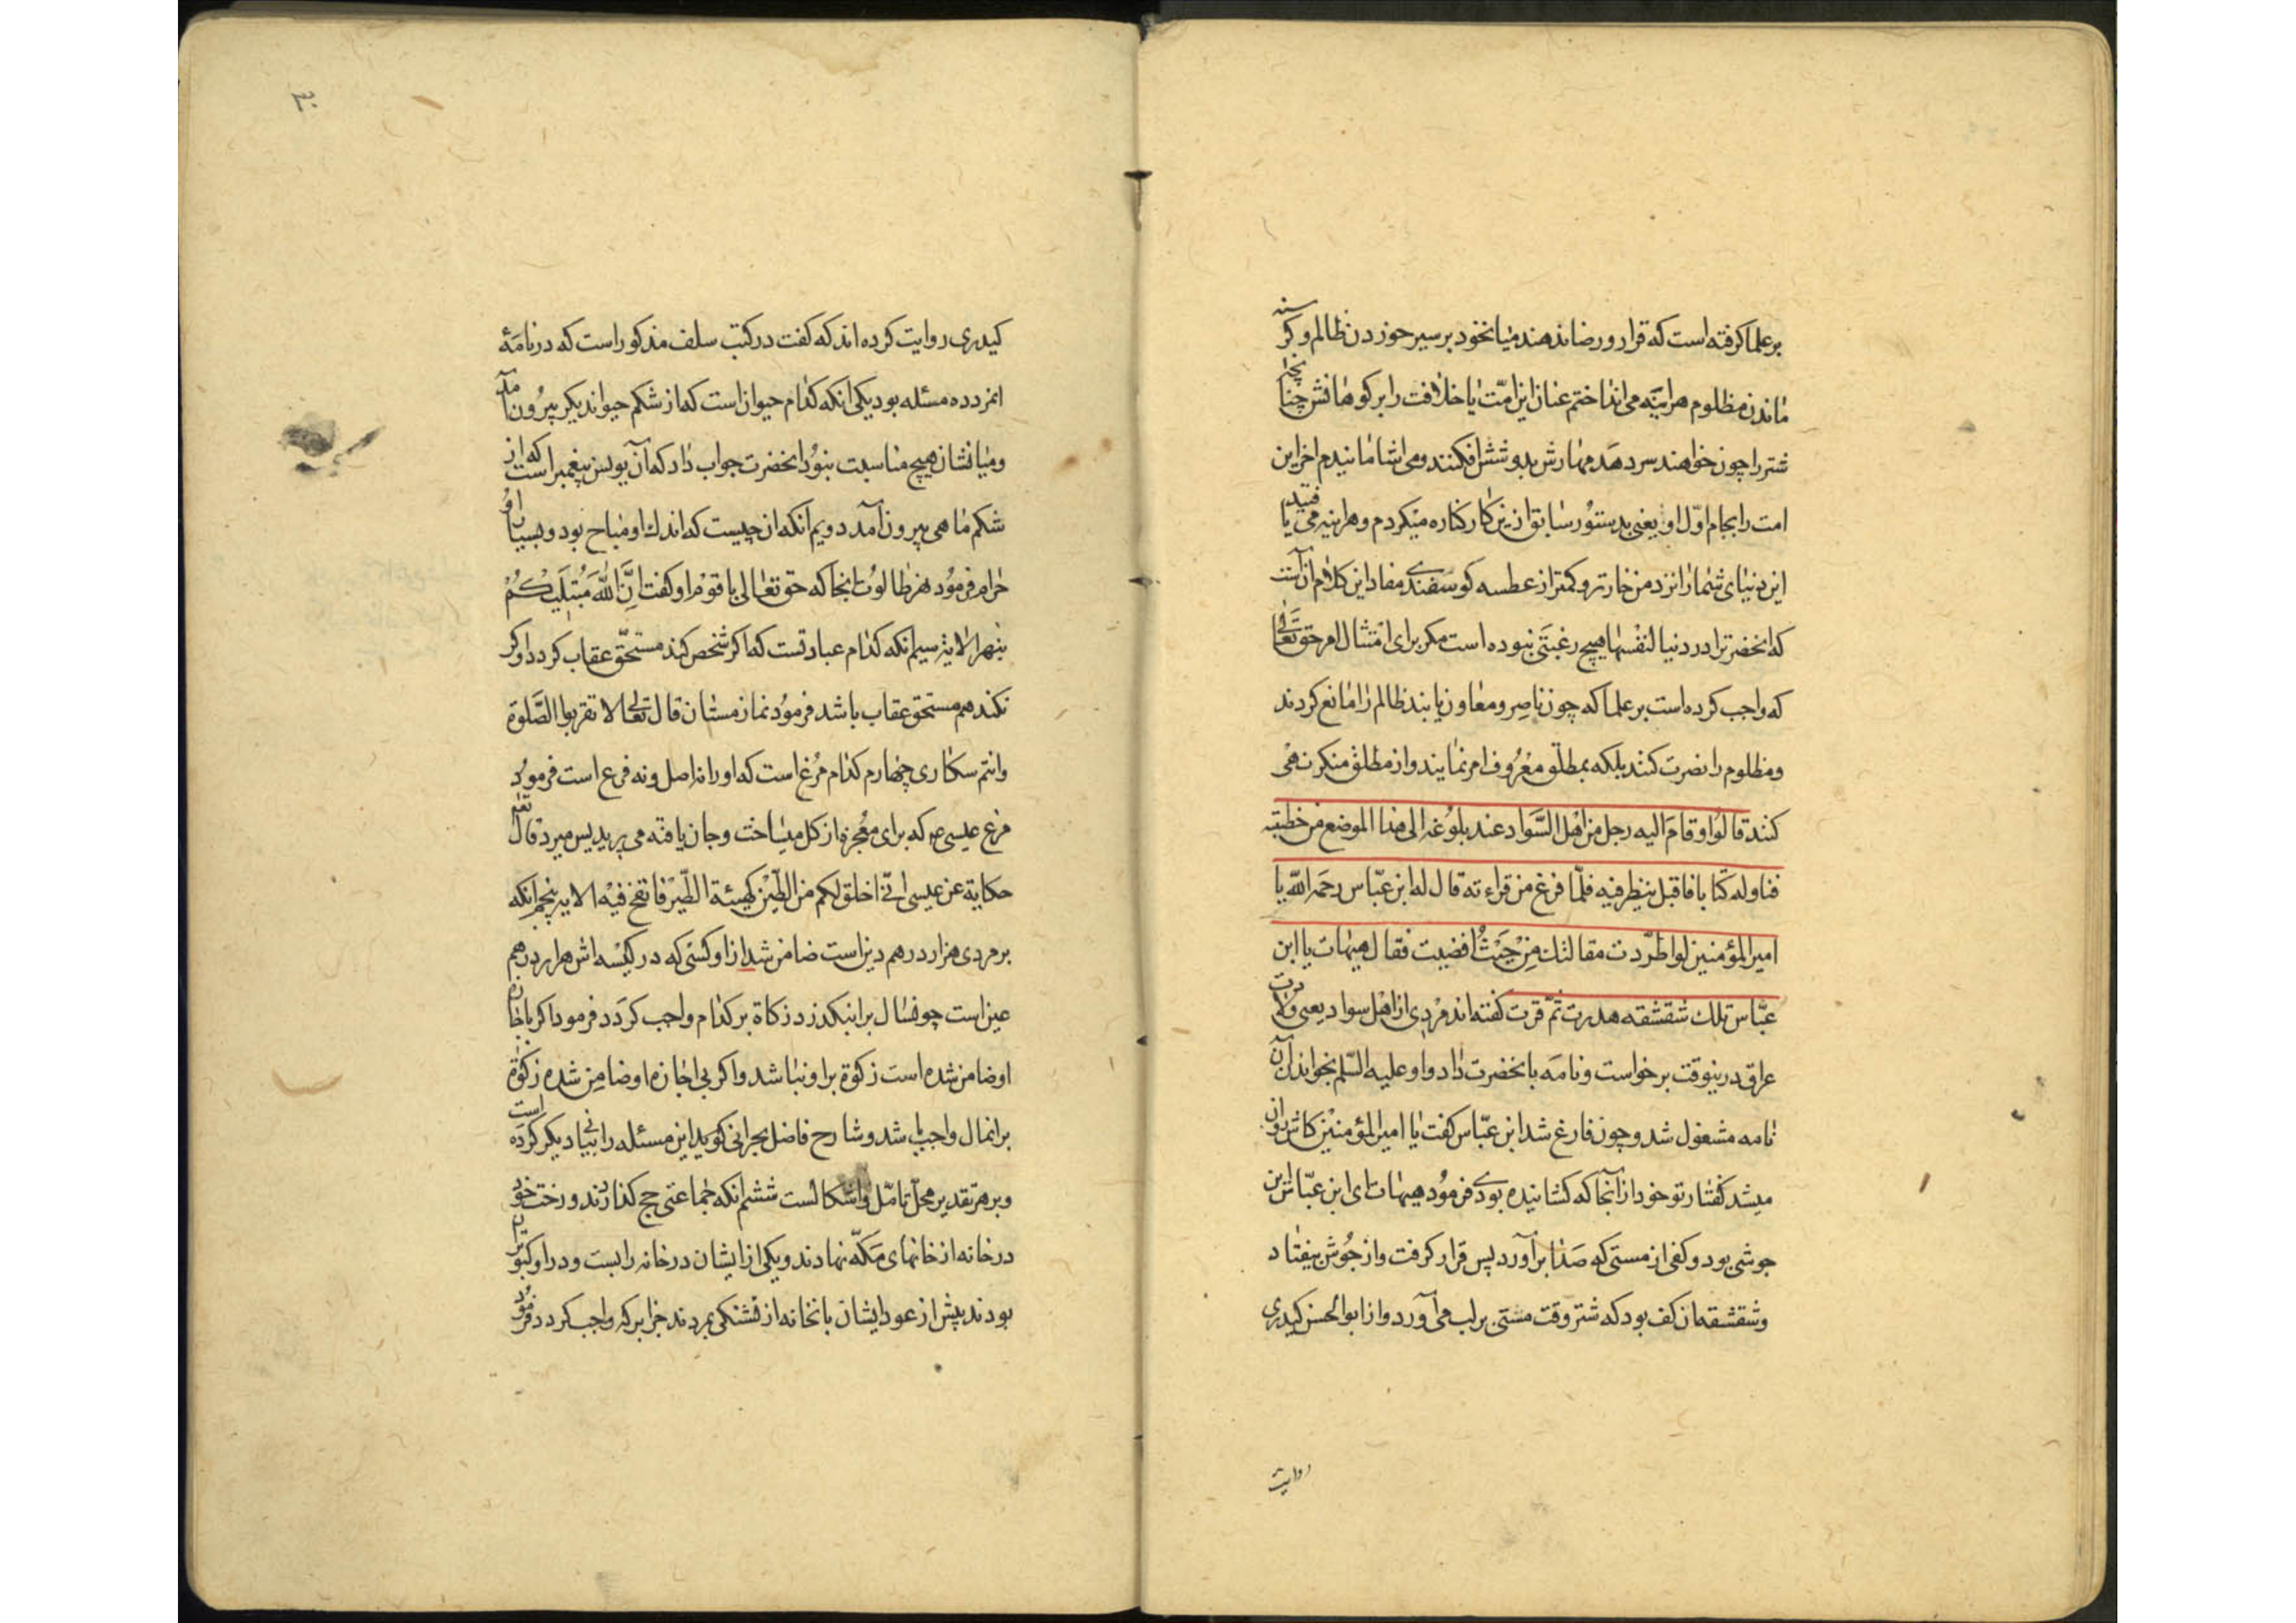 بر علما كرفته است كه قرار و رضا ندهند میانخود بر سیر خوردن ظالم و كرسنه
ماندن مظلوم هراینه می انداختم عنان این امّت یا خلافت را بر كوهانش چنانچه
شتر را چون خواهند سر دهند مهارش بدوشش افكنند و می اشامانیدم اخر این
امت را بجام اوّل او یعنی بدستور سابق ازین كار كناره میكردم و هراینه می یافتید
این دنیای شما را نزد من خارتر و كمتر از عطسه كوسفندی مفاد این كلام آنست
كه انحضرت را در دنیا لنفسها هیچ رغبتی نبوده است مكر برای امتثال امر حق تعالی
كه واجب كرده است بر علما كه چون ناصر و معاون یابند ظالم را مانع كردند
و مظلوم را نصرت كنند بلكه بمطلق معروف امر نمایند و از مطلق منكر نهی
كنند قالوا و قام الیه رجل من اهل السّواد عند بلوغه الی هذا الموضع من خطبته
فناوله كتابا فاقبل ینظر فیه فلمّا فرغ من قراءته قال له ابن عبّاس رحمه اللّه یا
امیر المؤمنین لو اطّردت مقالتك من حیث افضیت فقال هیهات یا ابن
عبّاس تلك شقشقه هدرت ثمّ قرت كفته اند مردی از اهل سواد یعنی ولایت
عراق درینوقت برخواست و نامه بانحضرت داد و او علیه السّلم بخواندن آن
نامه مشغول شد و چون فارغ شد ابن عبّاس كفت یا امیر المؤمنین كاش روان
میشد كفتار تو خود از آنجا كه كشانیده بودی فرمود هیهات ای ابن عبّاس این
جوشی بود و كفی از مستی كه صدا برآورد پس قرار كرفت و از جوش بیفتاد
و شقشقه ان كف بود كه شتر وقت مستی بر لب می آورد و از ابو الحسن كیدری
روایت
۳۰
كیدری روایت كرده اند كه كفت در كتب سلف مذكور است كه در نامهٔ
انمرد ده مسئله بود یكی انكه كدام حیوان است كه از شكم حیوان دیكر بیرون آمد
و میانشان هیچ مناسبت نبود انحضرت جواب داد كه آن یونس پیغمبر است كه از
شكم ماهی بیرون آمد دویم آنكه ان چیست كه اندك او مباح بود و بسیار او
حرام فرمود نهر طالوت انجا كه حق تعالی با قوم او كفت إنّ اللّه مبتلیكم
بنهر الایة سیم انكه كدام عبادتست كه اكر شخص كند مستحقّ عقاب كردد و اكر
نكند هم مستحق عقاب باشد فرمود نماز مستان قال تعالی لا تقربوا الصّلوة
و انتم سكاری چهارم كدام مرغ است كه او را نه اصل و نه فرع است فرمود
مرغ عیسی ع كه برای معجزه از كل میساخت و جان یافته می پرید پس میرد قال تعم
حكایة عن عیسی انّی اخلق لكم من الطّین كهیئة الطّیر فانفخ فیه الایه پنجم انكه
بر مردی هزار درهم دین است ضامن شد از او كسی كه در كیسه اش هزار درهم
عین است چون سال بر این بكذرد زكاة بر كدام واجب كردد فرمود اكر باجازه
او ضامن شده است زكوة بر او نباشد و اكر بی اجازه او ضامن شده زكوة
بر انمال واجب باشد و شارح فاضل بحرانی كوید این مسئله را بنیاد دیكر كرده است
و بر هر تقدیر محل تامّل و اشكالست ششم انكه جماعتی حج كذاردند و رخت خود
در خانه از خانهای مكّه نهادند و یكی از ایشان در خانه را بست و در او كبوتران
بودند پیش از عود ایشان بانخانه از تشنكی بمردند جزا بر كه واجب كردد فرمود